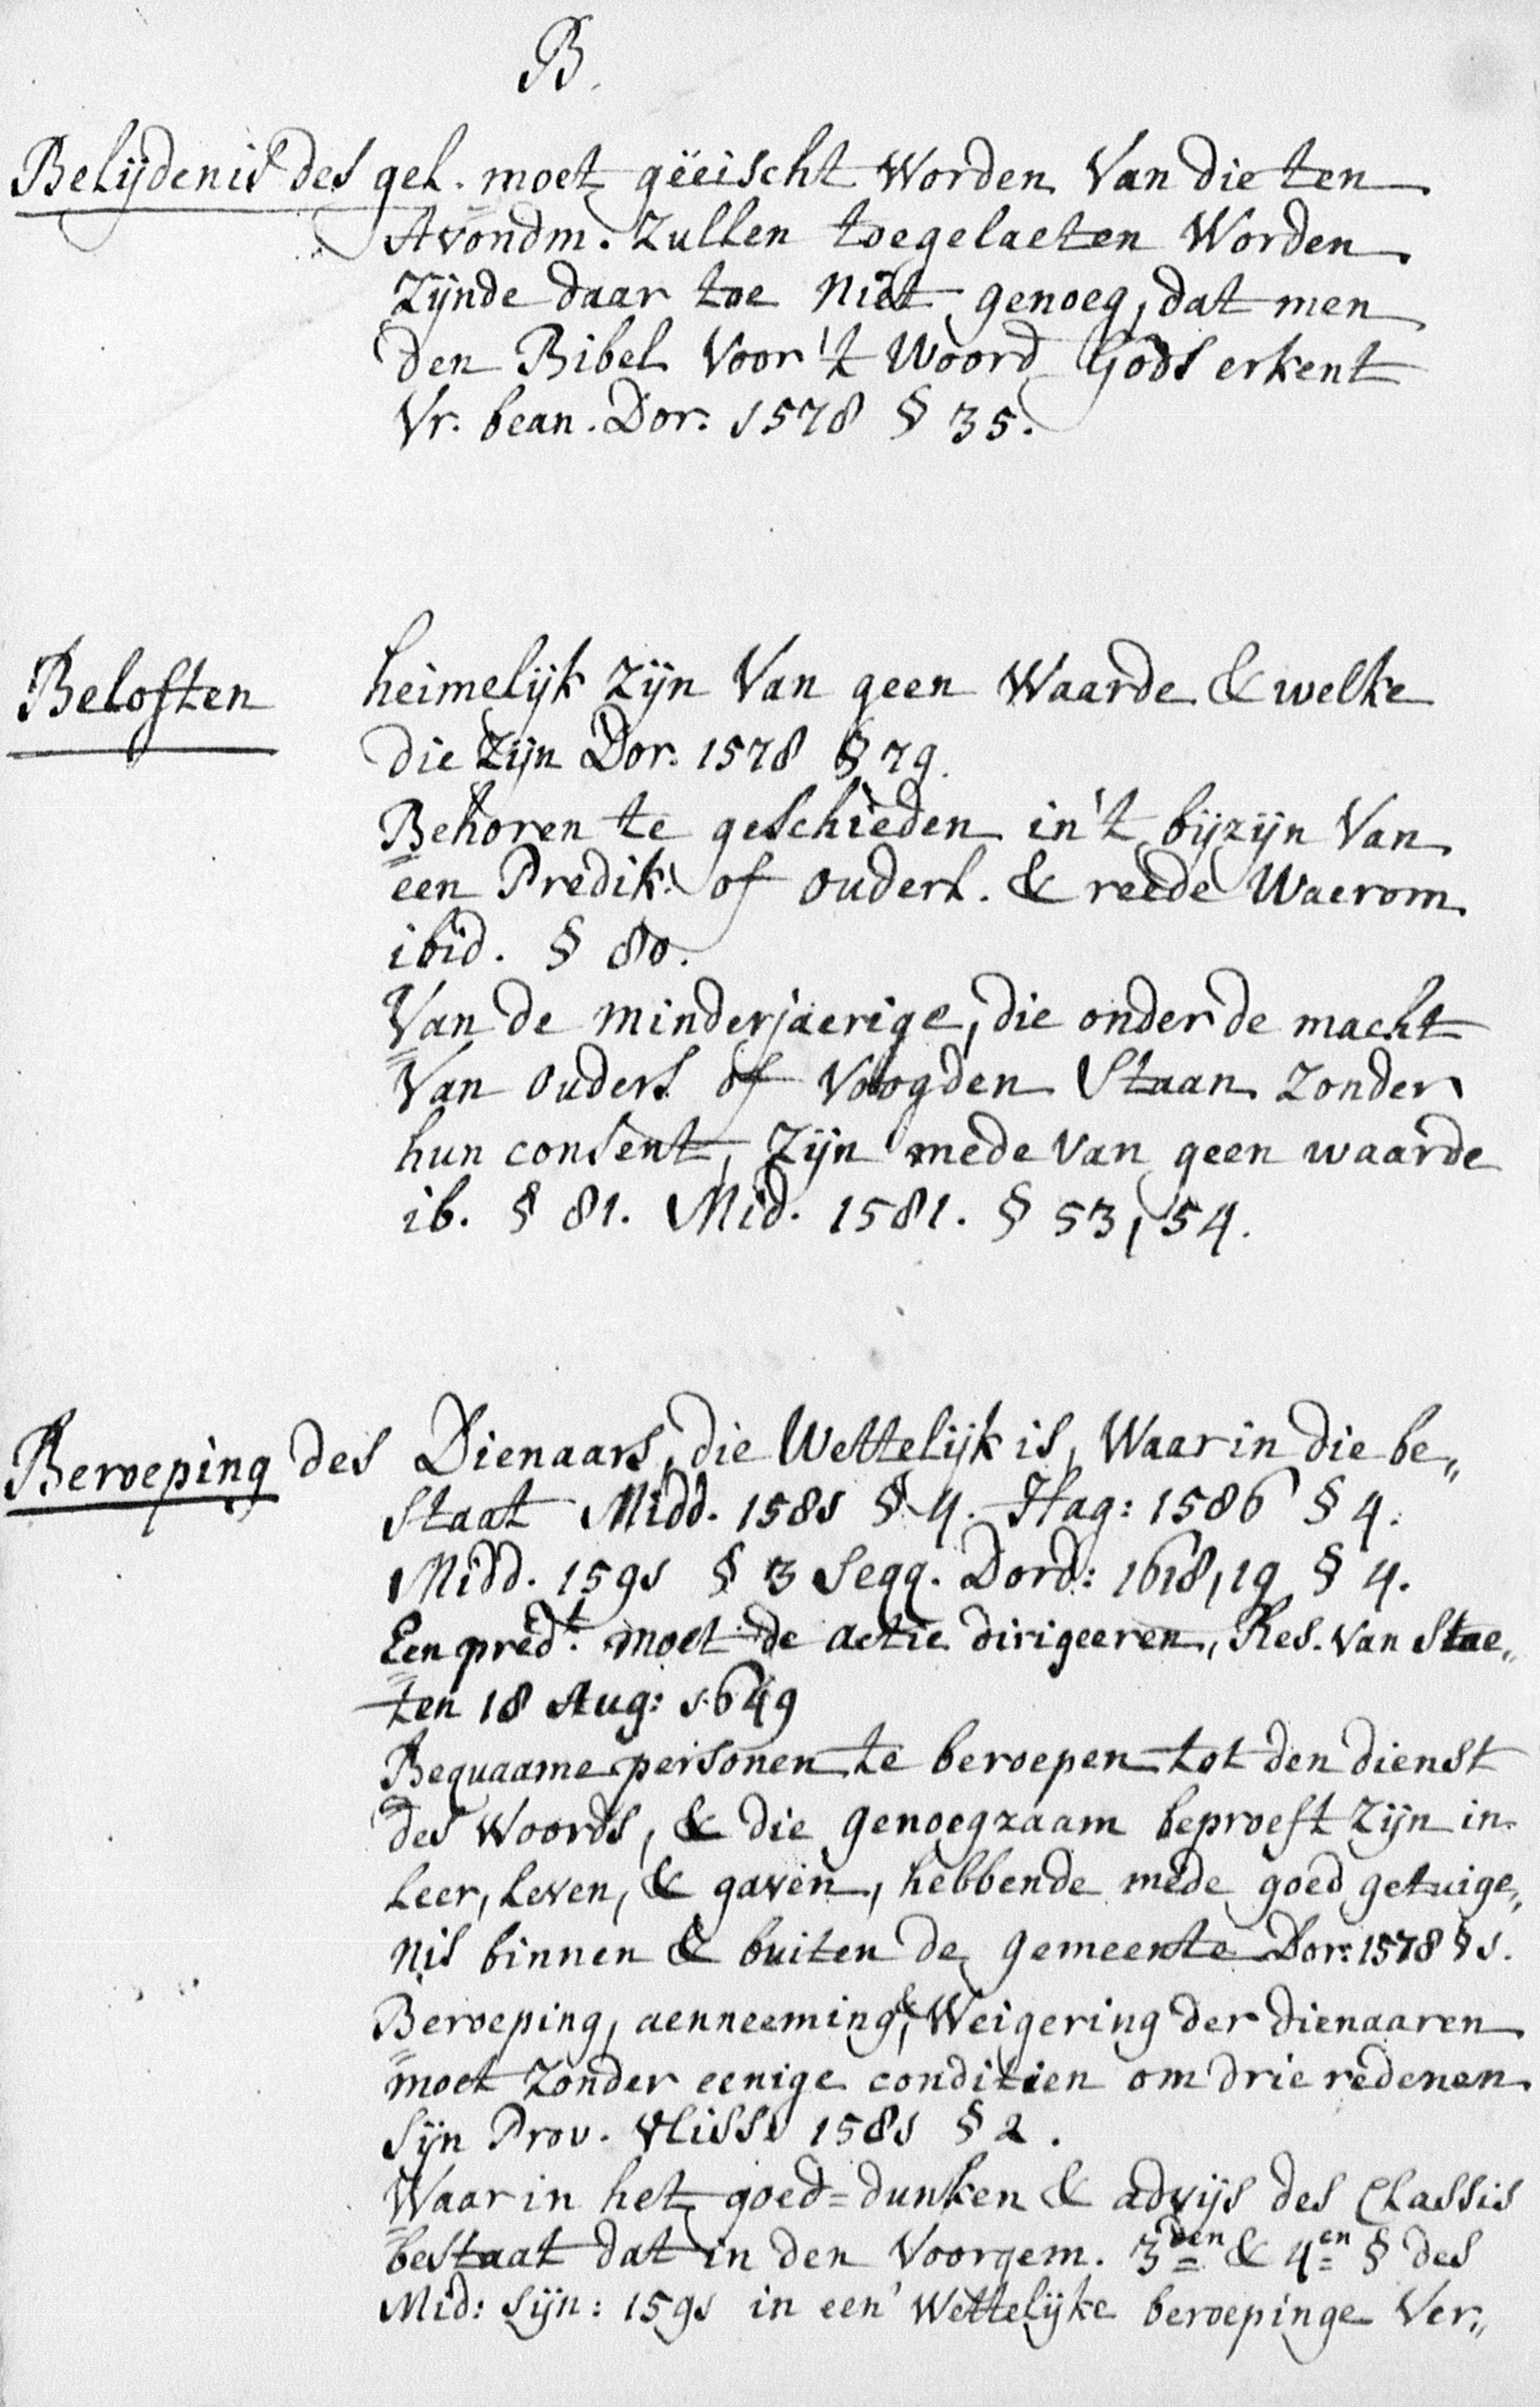 B.
Belijdenis des gel. moet gëeischt Worden Van die ten
Avondm. Zullen toegelaeten Worden
Zijnde daar toe niet genoeg, dat men
den Bibel Voor 't Woord Gods erkent
Vr. bean. Dor: 1578 § 35.
Beloften heimelijk Zijn Van geen Waarde & welke
die Zijn Dor: 1578 § 79.
Behoren te geschieden in 't bijzijn Van
een Predik: of ouderl. & reede Waerom
ibid. § 80.
Van de minderjaerige, die onder de macht
Van ouders of Voogden Staan Zonder
hun consent, Zijn mede Van geen waarde
ib. § 81. Mid. 1581. § 53, 54.
Beroeping des Dienaars, die Wettelijk is, Waar in die be„
staat Midd. 1581 § 4. Hag: 1586 § 4.
Midd. 1591 § 3 seqq. Dord: 1618,19 § 4.
Een predt. moet de actie dirigeeren, Res. Van Stae„
ten 18 Aug: 1649
Bequaame personen te beroepen tot den dienst
des Woords, & die genoegzaam beproeft Zijn in
Leer, Leven, & gaven, hebbende mede goed getuige„
nis binnen & buiten de gemeente Dor: 1578 § 1.
Beroeping, aenneeming, & Weigering der dienaaren
moet Zonder eenige conditien om drie redenen
Sijn Prov. Vliss. 1581 § 2.
Waar in het goed=dunken & advijs des Classis
bestaat dat in den Voorgem. 3den & 4en § des
Mid: Sijn: 1591 in een' Wettelijke beroepinge Ver„